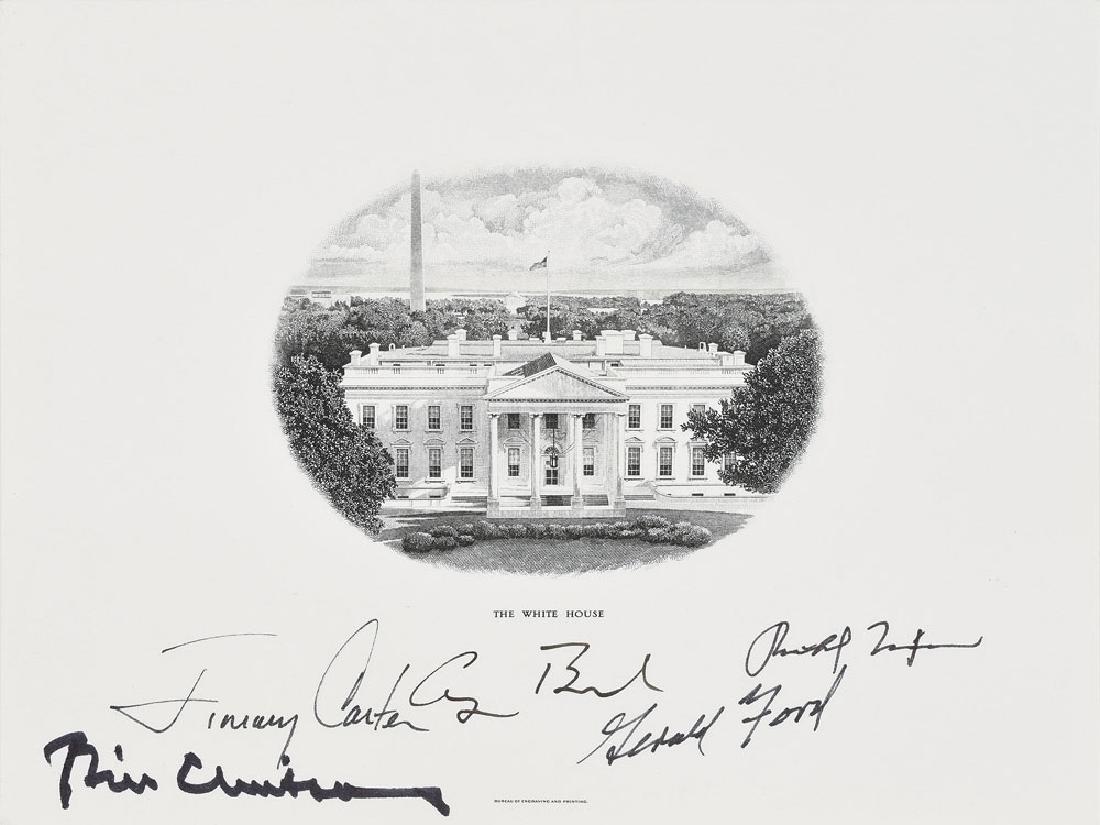 THE WHITE HOUSE
Jimmy Carter
Bush
Richard Nixon
Gerald Ford
Bill Clinton
BUREAU OF ENGRAVING AND PRINTING.